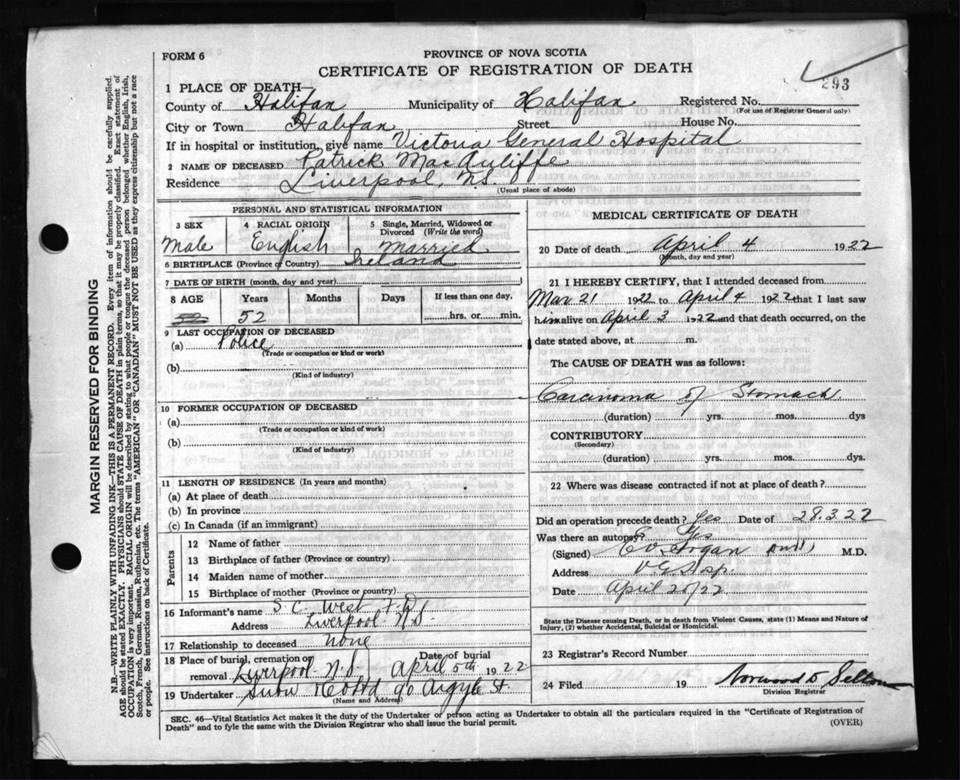 FORM 6
PROVINCE OF NOVA SCOTIA
CERTIFICATE OF REGISTRATION OF DEATH
293
1 PLACE OF DEATH
County of Halifax Municipality of Halifax Registered No.
(For use of Registrar General only)
City or Town Halifax Street House No.
If in hospital or institution, give name Victoria General Hospital
2 NAME OF DECEASED Patrick MacAuliffe
Residence Liverpool, N.S.
(Usual place of abode)
PERSONAL AND STATISTICAL INFORMATION
3 SEX 4 RACIAL ORIGIN 5 Single, Married, Widowed or Divorced (Write the word)
Male English Married
6 BIRTHPLACE (Province or Country) Ireland
7 DATE OF BIRTH (month, day and year)
8 AGE Years Months Days If less than one day.
52 hrs. or min.
9 LAST OCCUPATION OF DECEASED
(a) Police
(Trade or occupation or kind or work)
(b)
(Kind of industry)
10 FORMER OCCUPATION OF DECEASED
(a)
(Trade or occupation or kind of work)
(b)
(Kind of industry)
11 LENGTH OF RESIDENCE (In years and months)
(a) At place of death
(b) In province
(c) In Canada (if an immigrant)
Parents
12 Name of father
13 Birthplace of father (Province or country)
14 Maiden name of mother
15 Birthplace of mother (Province or country)
16 Informant's name S. C. West
Address Liverpool N.S.
17 Relationship to deceased none
18 Place of burial, cremation or removal Liverpool N.S. Date of burial April 5th 1922
19 Undertaker Snow & Co Ltd 90 Argyle St.
(Name and Address)
MEDICAL CERTIFICATE OF DEATH
20 Date of death April 4 1922
(Month, day and year)
21 I HEREBY CERTIFY, that I attended deceased from
Mar 21 1922 to April 4 1922 that I last saw
him alive on April 3 1922 and that death occurred, on the
date stated above, at m.
The CAUSE OF DEATH was as follows:
Carcinoma of Stomach
(duration) yrs. mos. dys
CONTRIBUTORY
(Secondary)
(duration) yrs. mos. dys.
22 Where was disease contracted if not at place of death?
Did an operation precede death? Yes Date of 28.3.22
Was there an autopsy? Yes
(Signed) M.D.
Address V G Hosp.
Date April 20/22
State the Disease causing Death, or in death from Violent Causes, state (1) Means and Nature of Injury, (2) whether Accidental, Suicidal or Homicidal.
23 Registrar's Record Number
24 Filed 19
Division Registrar
SEC. 46—Vital Statistics Act makes it the duty of the Undertaker or person acting as Undertaker to obtain all the particulars required in the "Certificate of Registration of
Death" and to fyle the same with the Division Registrar who shall issue the burial permit.
(OVER)
MARGIN RESERVED FOR BINDING
N.B.—WRITE PLAINLY WITH UNFADING INK—THIS IS A PERMANENT RECORD. Every item of information should be carefully supplied.
AGE should be stated EXACTLY. PHYSICIANS should STATE CAUSE OF DEATH in plain terms, so that it may be properly classified. Exact statement of
OCCUPATION is very important. RACIAL ORIGIN will be described by stating to what people or tongue the deceased person belonged whether English, Irish,
Scotch, French, German, Russian, Ruthenian, etc. The terms "AMERICAN" OR "CANADIAN" MUST NOT BE USED as they express citizenship but not a race
or people. See instructions on back of Certificate.